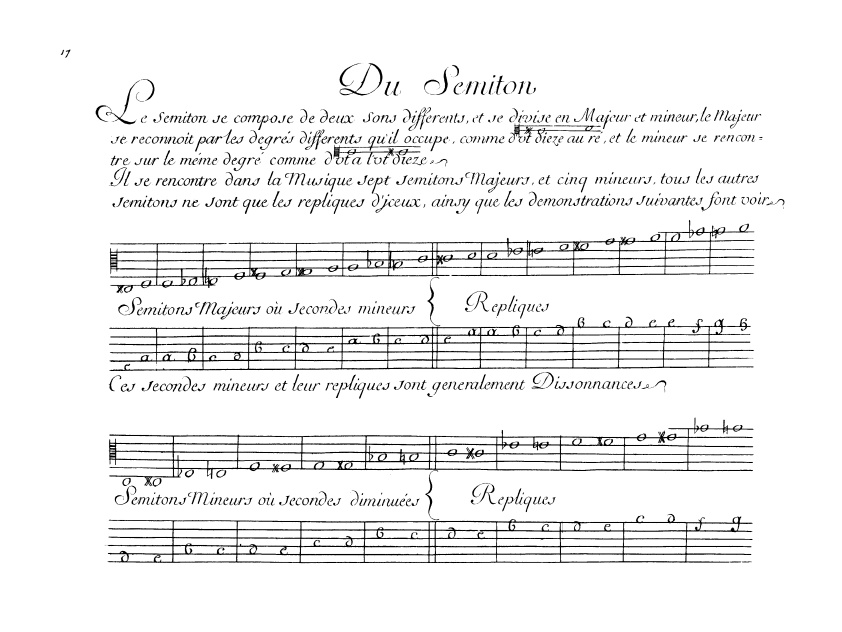 17
Du Semiton
Le Semiton se compose de deux Sons differents, et se divise en Majeur et mineur, le Majeur
se reconnoit par les degrés differents qu'il occupe, comme d'ut dieze au re, et le mineur se rencon=
tre sur le même degré comme d'ut a l'ut dieze
Il se rencontre dans la Musique sept semitons Majeurs, et cinq mineurs, tous les autres
semitons ne sont que les repliques d'jceux, ainsy que les demonstrations suivantes font voir
Semitons Majeurs où secondes mineurs Repliques
e a a B c d B c d e a B c d e a a B c d B c d e e f g B
Ces secondes mineurs et leur repliques sont generalement Dissonnances
Semitons Mineurs où secondes diminuées Repliques
d e B c d e c d B c d e B c d e c d f g